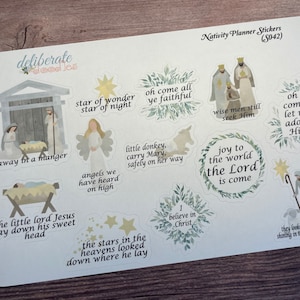 deliberate
Nativity Planner Stickers
(S042)
star of wonder
star of night
oh come all
ye faithful
wise men still
seek Him
oh come
let us
adore
Him
away in a manger
angels we
have heard
on high
little donkey,
carry Mary,
safely on her way
joy to
the world
the Lord
is come
the little lord Jesus
lay down his sweet
head
believe in
Christ
the stars in the
heavens looked
down where he lay